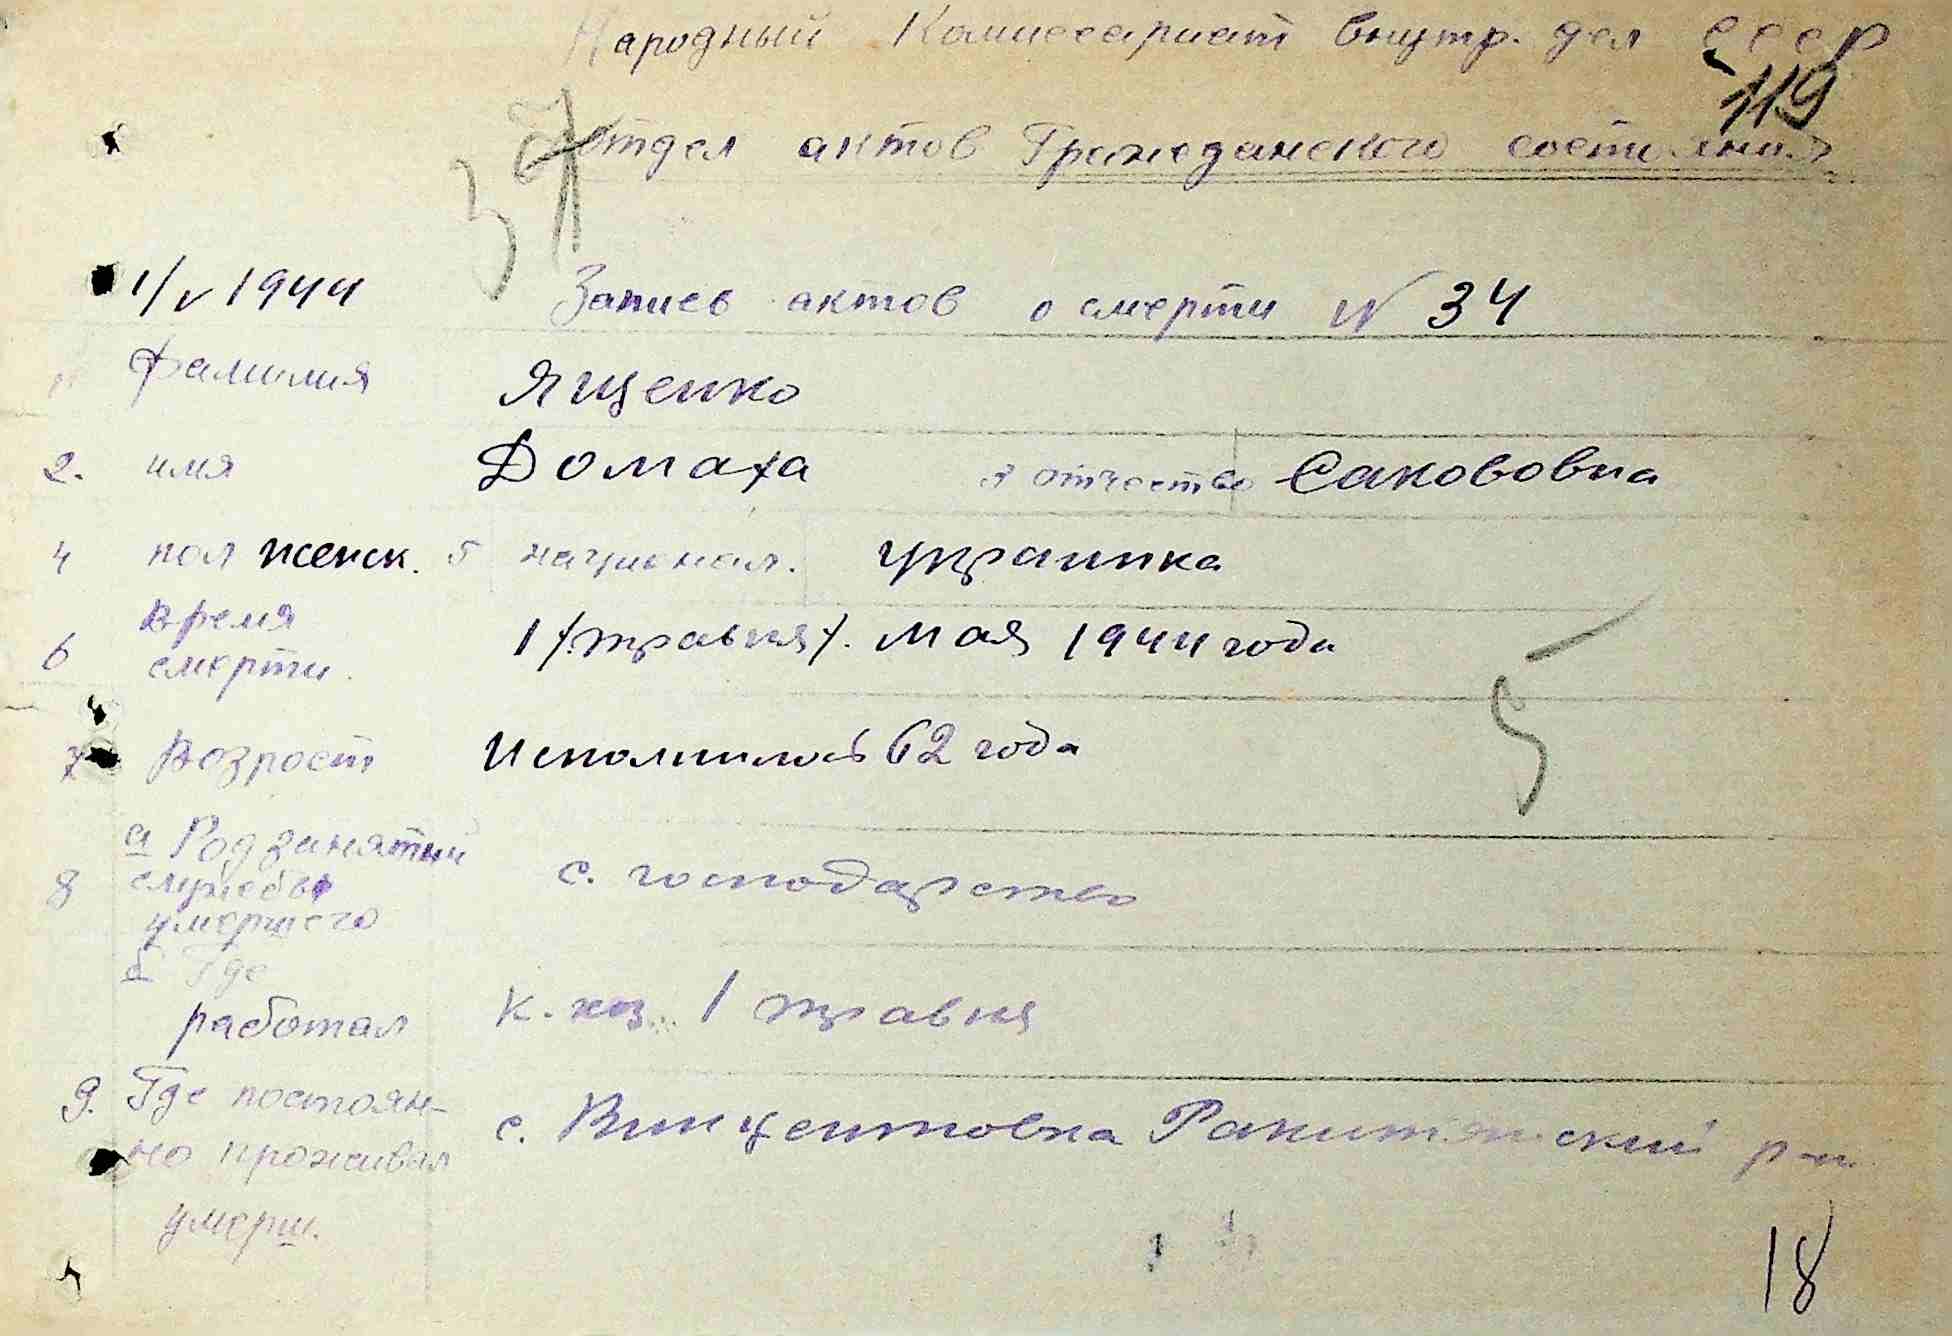 Народный Комиссариат внутр. дел СССР
119
Отдел актов Гражданского состояния
1/V 1944 Запись актов о смерти N 34
фамилия Ященко
2. имя Домаха 3 отчество Сакововна
4 пол женск. 5 национал. украинка
6 время смерти 1 /травня/. мая 1944 года
7 Возрост Исполнилось 62 года
8 а Род занятий службы умершего с. господарство
б Где работал к. хоз. 1 травня
9. Где постоян-
но проживал умерш. с. Винцентовка Ракитянский р-н
18